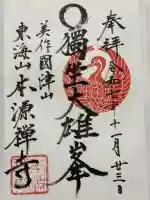 奉拝
十一月廿三日
獨坐大雄峯
美作國津山
東海山本源禅寺